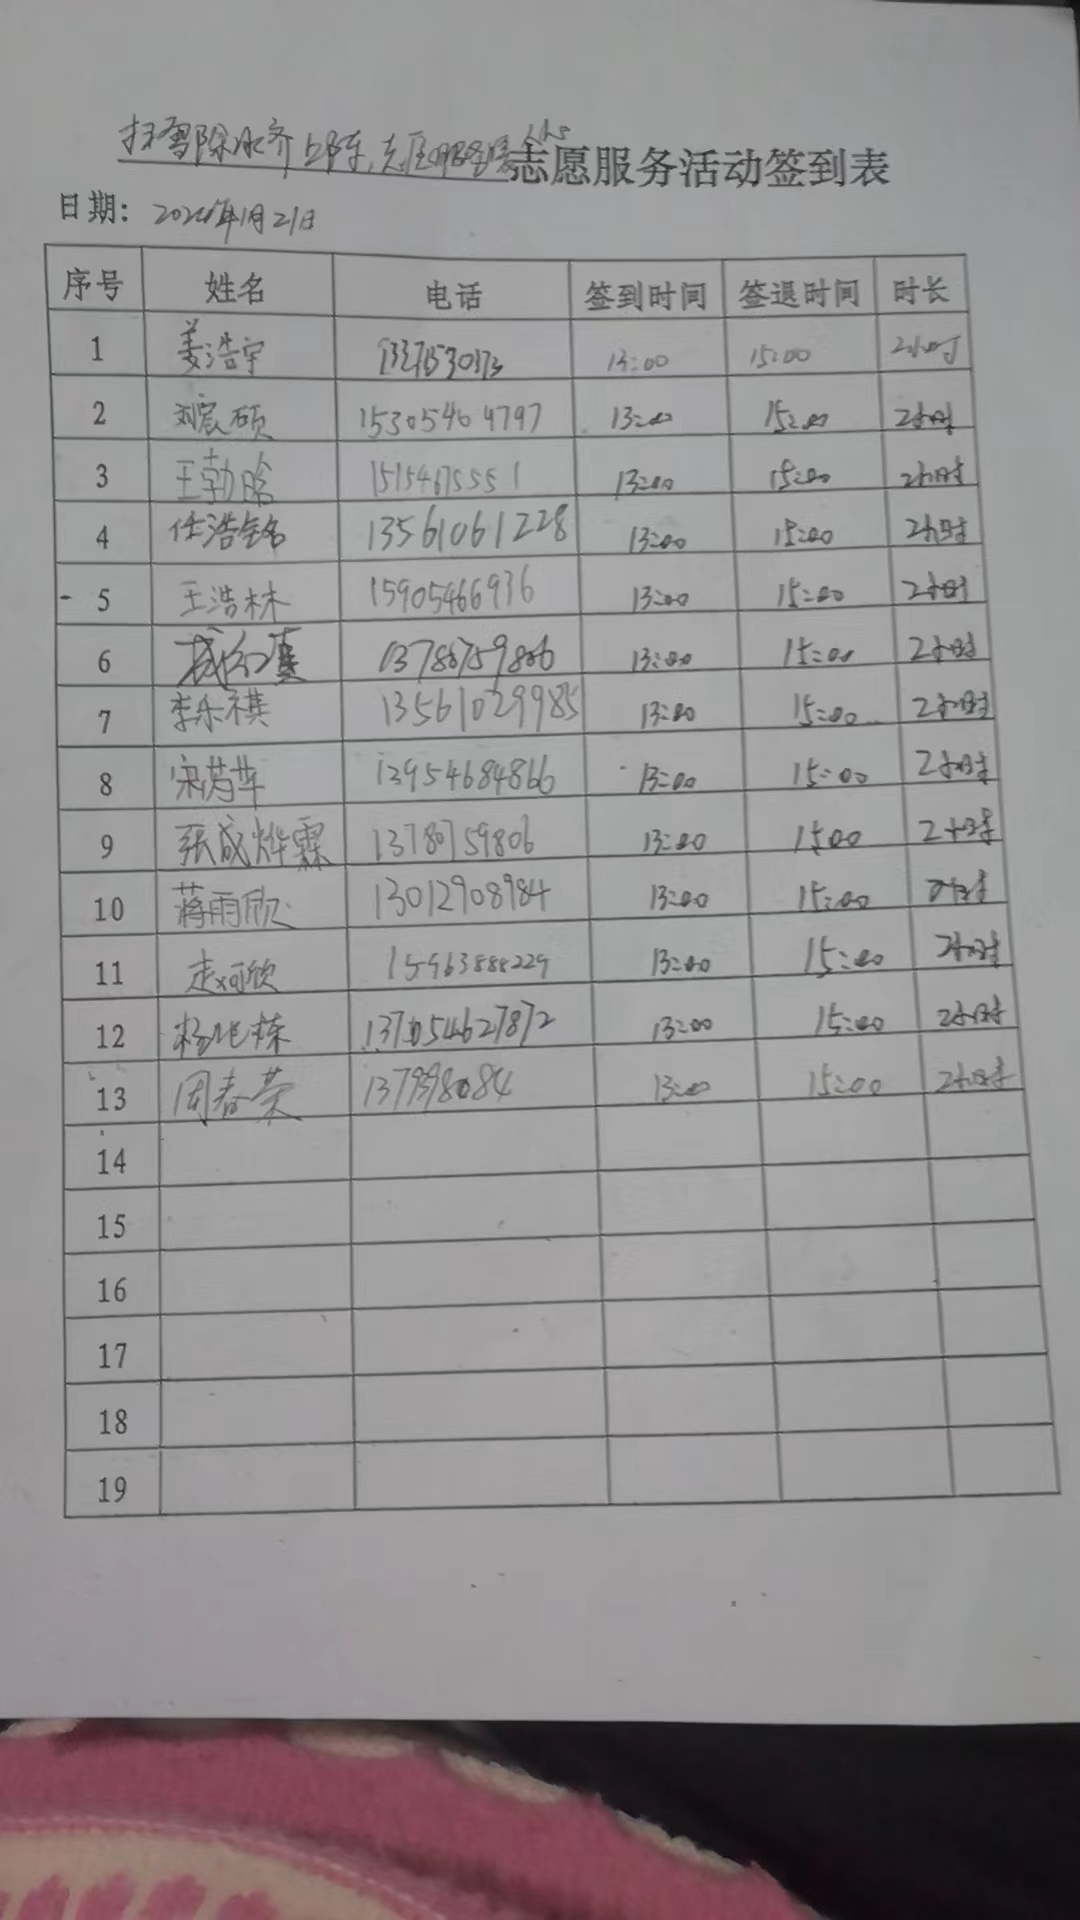 扫雪除冰齐上阵,志愿服务暖人心志愿服务活动签到表
日期: 2024年1月21日
序号 姓名 电话 签到时间 签退时间 时长
1 姜浩宇 13:00 15:00 2小时
2 刘宸硕 15305464797 13:00 15:00 2小时
3 王勃晗 15154675551 13:00 15:00 2小时
4 任浩铭 13561061228 13:00 15:00 2小时
5 王浩林 15905466936 13:00 15:00 2小时
6 13:00 15:00 2小时
7 李乐祺 13561029985 13:00 15:00 2小时
8 宋芮华 13954684866 13:00 15:00 2小时
9 张成烨霖 13780759806 13:00 15:00 2小时
10 蒋雨欣 13012908984 13:00 15:00 2小时
11 15963888229 13:00 15:00 2小时
12 13:00 15:00 2小时
13 周春荣 13:00 15:00 2小时
14
15
16
17
18
19